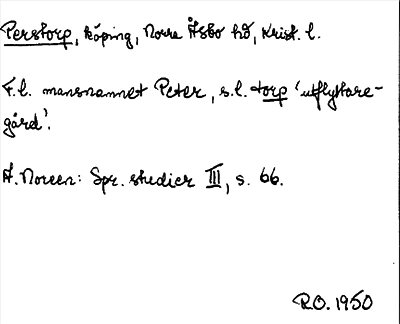 Perstorp, köping, Norra Åsbo hd, Krist. l.
F.l. mansnamnet Peter, s.l. torp 'utflyttare-
gård'.
A. Noreen: Spr. studier III, s. 66.
R.O. 1950